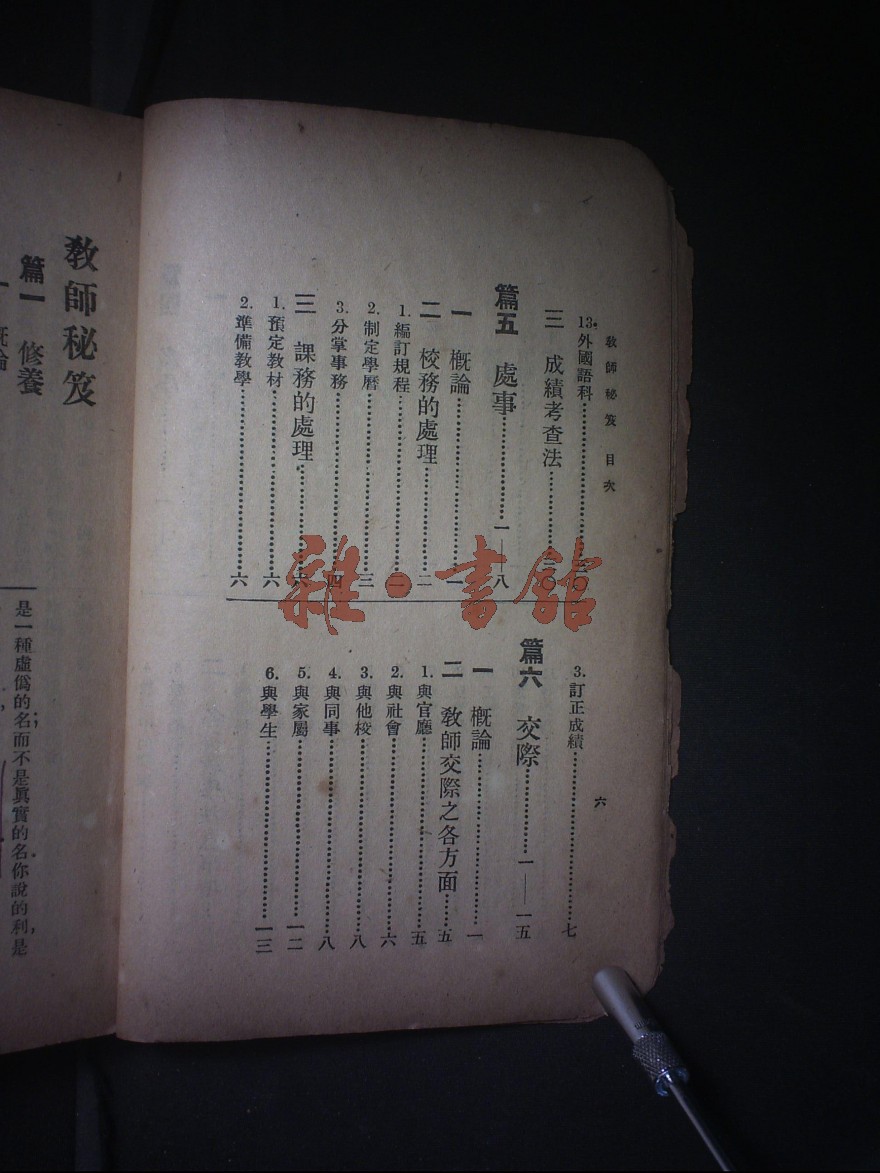 敎師秘笈 目次
13.外國語科……………………
三 成績考查法……………〇
篇五 處事……………一——八
一 槪論……………………一
二 校務的處理……………二
1.編訂規程…………………二
2.制定學曆…………………三
3.分掌事務…………………四
三 課務的處理……………六
1.預定敎材…………………六
2.準備敎學…………………六
3.訂正成績…………………七
篇六 交際……………一——一五
一 槪論……………………一
二 敎師交際之各方面……五
1.與官廳……………………五
2.與社會……………………六
3.與他校……………………八
4.與同事……………………八
5.與家屬……………………一二
6.與學生……………………一三
六
雜·書館
敎師秘笈
篇一 修養
一 槪論
是一種虛僞的名;而不是眞實的名.你說的利,是